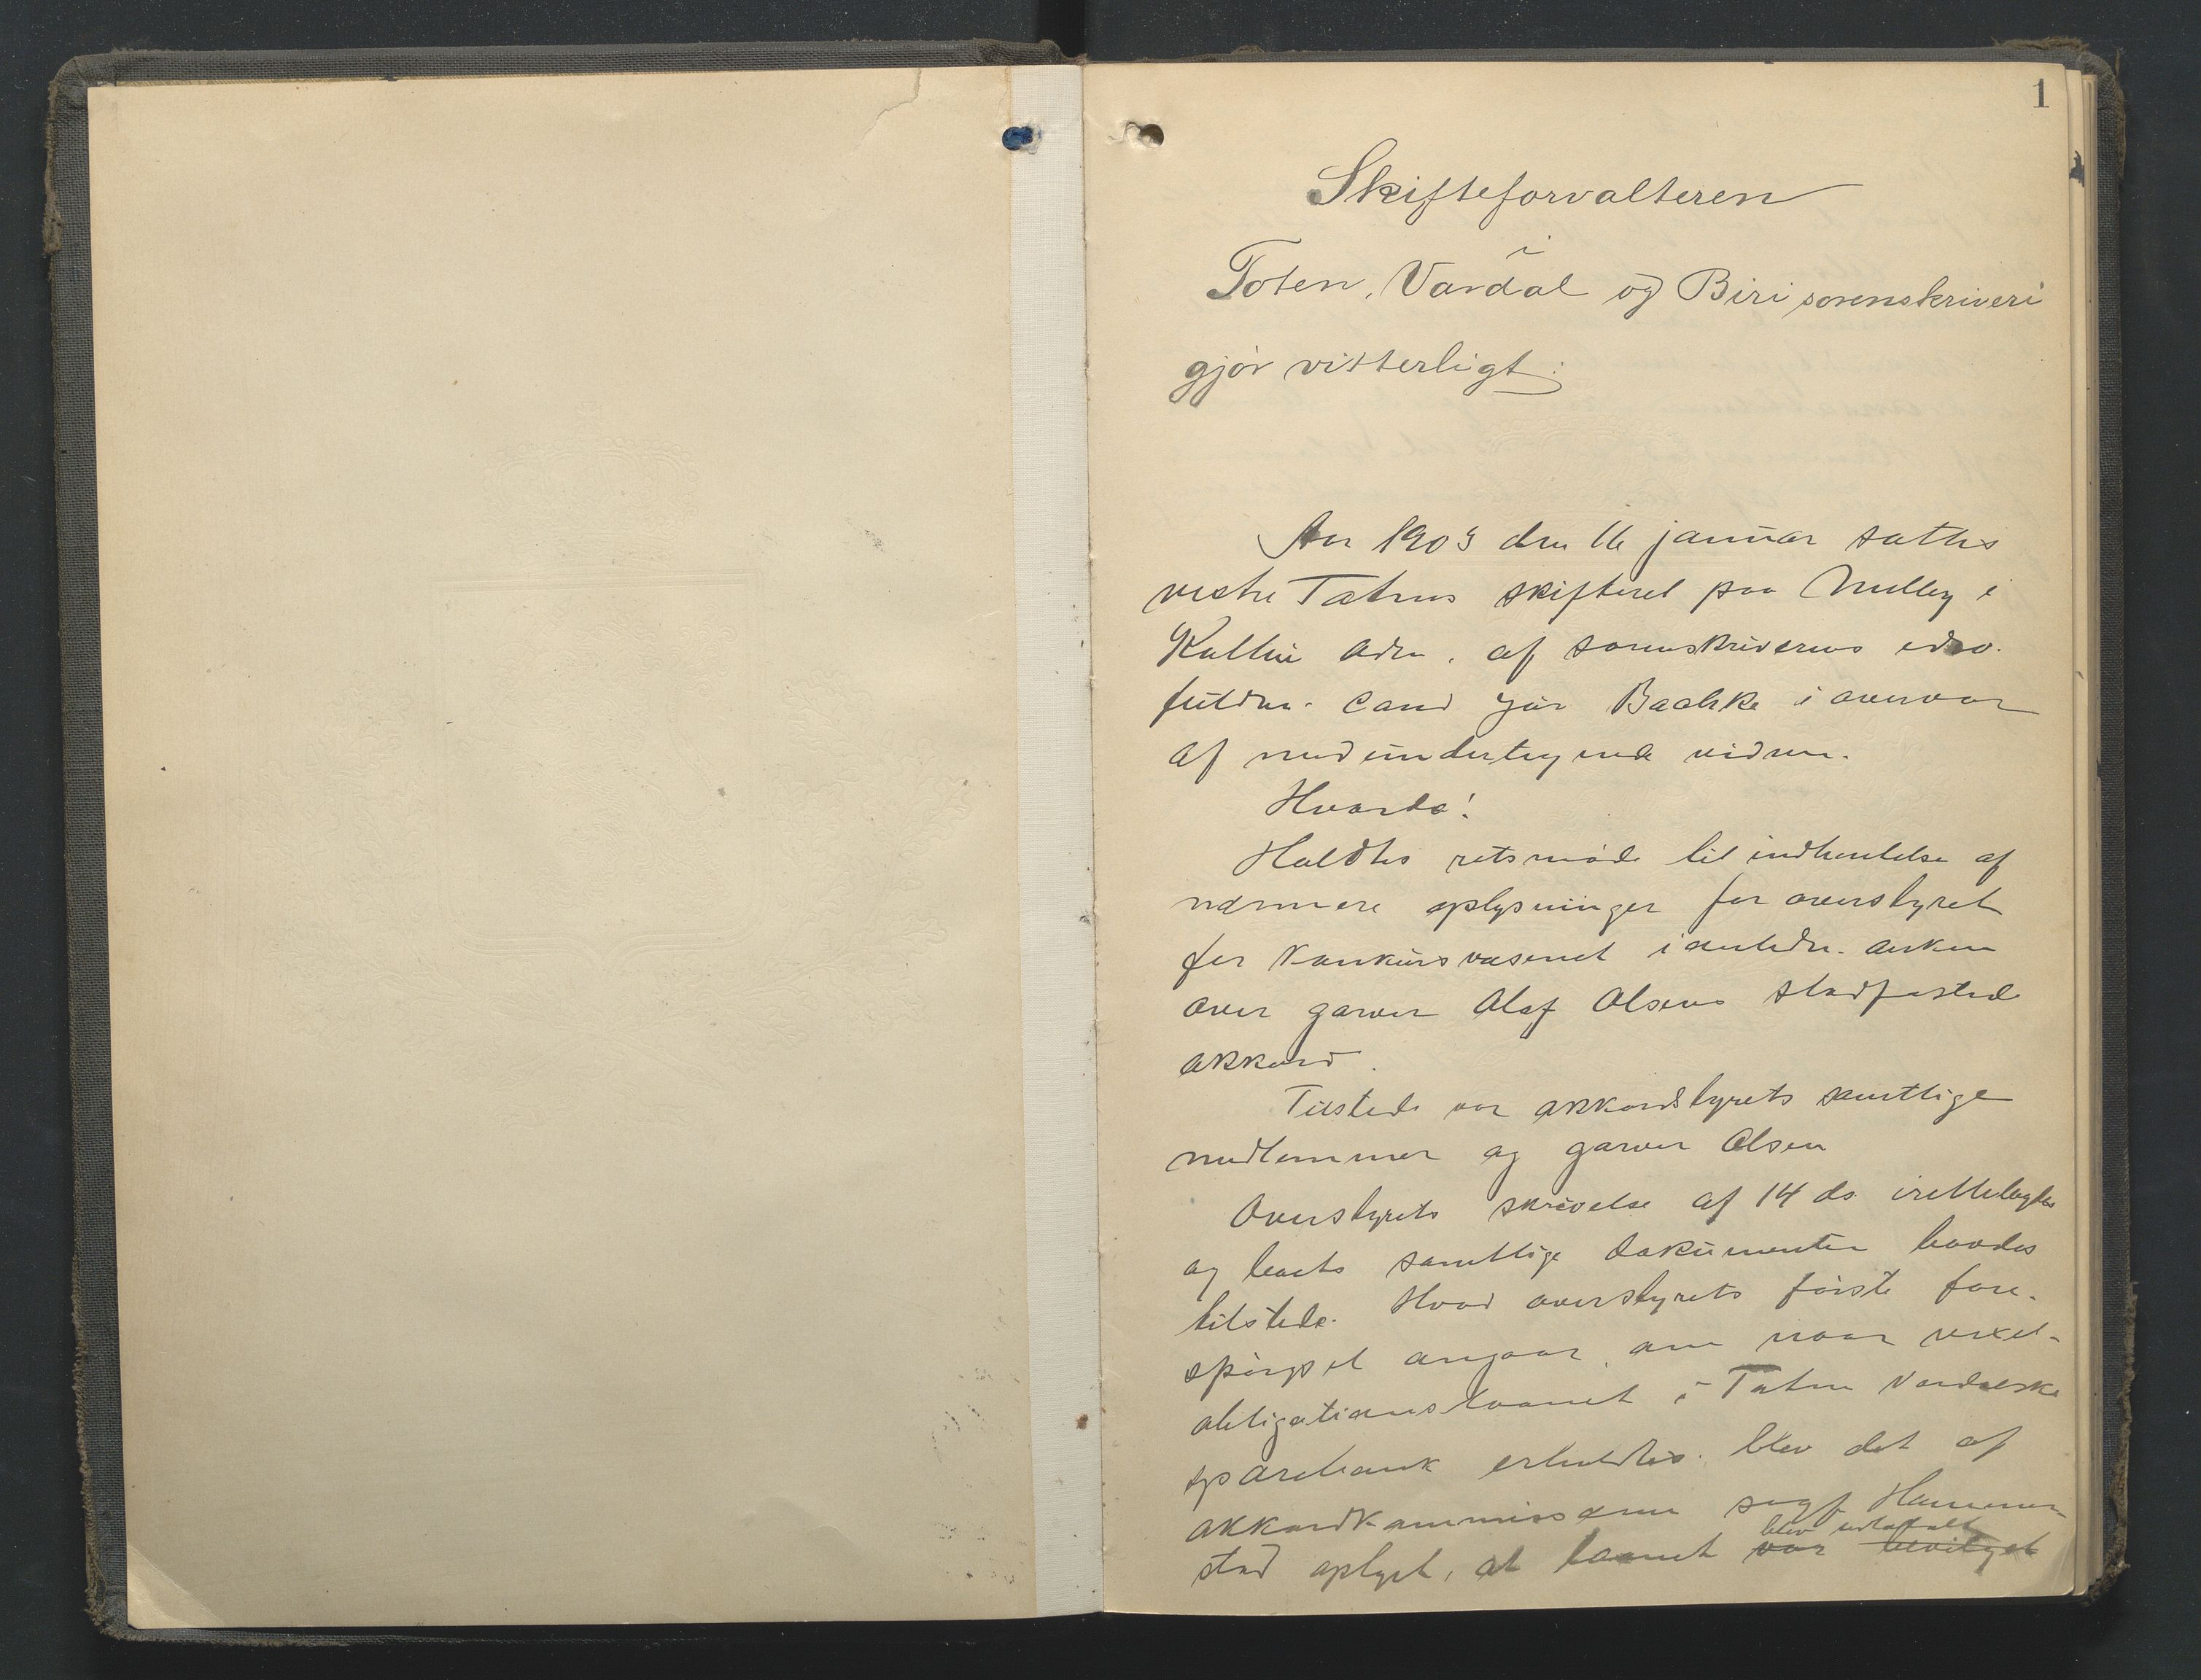 1
Skifteforvalteren
i
Toten, Vardal og Biri sorenskriveri
gjør vitterligt:
Aar 1903 den 16 januar sattes
vestre Totens skifteret paa i
Kolbu adm. af sorenskriverens edsv.
fuldm. cand jur Bachke i overvær
af medundertegnede vidner.
Hvorda!
Holdtes retsmøde til indhentelse af
nærmere oplysninger for overstyret
for konkursvæsenet i anledn. anken
over garver Olaf Olsens stadfæstede
akkord.
Tilstede var akkordstyrets samtlige
medlemmer og garver Olsen
Overstyrets skrivelse af 14 ds. irettelagdes
og boets samtlige dokumenter havdes
tilstede. Hvad overstyrets første fore-
spørgsel angaar, om naar vexel-
obligationslaanet i Toten Vardalske
sparebank erholdtes. blev det af
akkordkommissæren sagf. Hammer-
stad oplyst, at laanet var bevilget
blev udbetalt